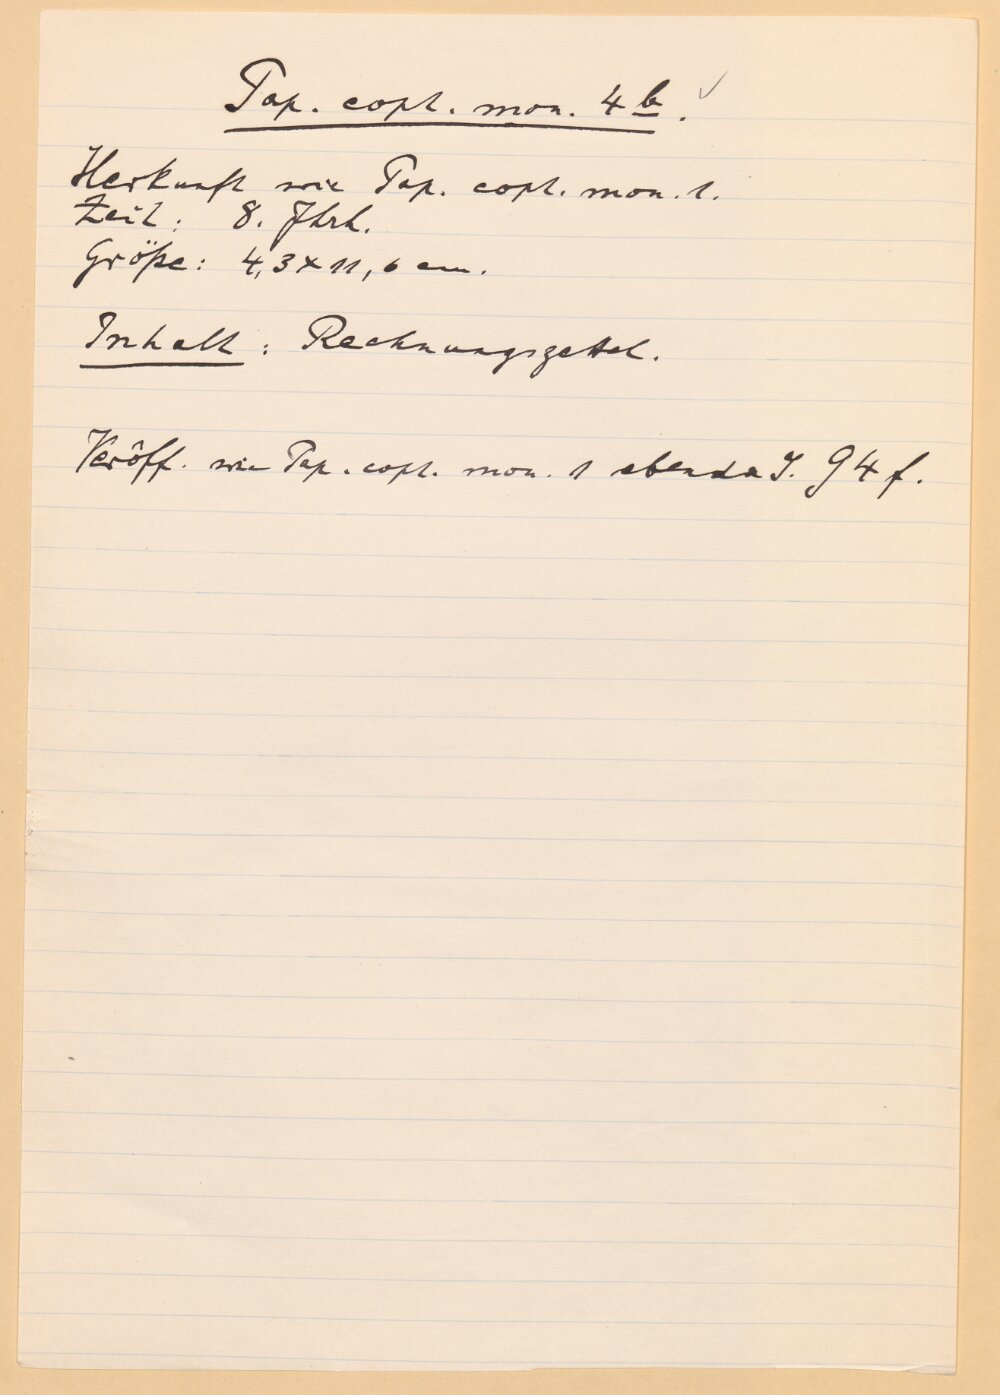 Pap. copt. mon. 4 b. ✓
Herkunft wie Pap. copt. mon. 1.
Zeit: 8. Jhrh.
Größe: 4,3 x 11,6 cm.
Inhalt: Rechnungszettel.
Veröff. wie Pap. copt. mon. 1 ebenda S. 94 f.